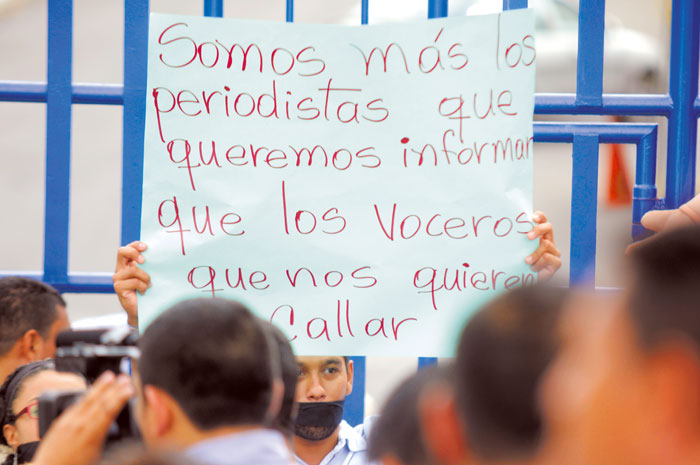 Somos más los
periodistas que
queremos informar
que los Voceros
que nos quieren
Callar